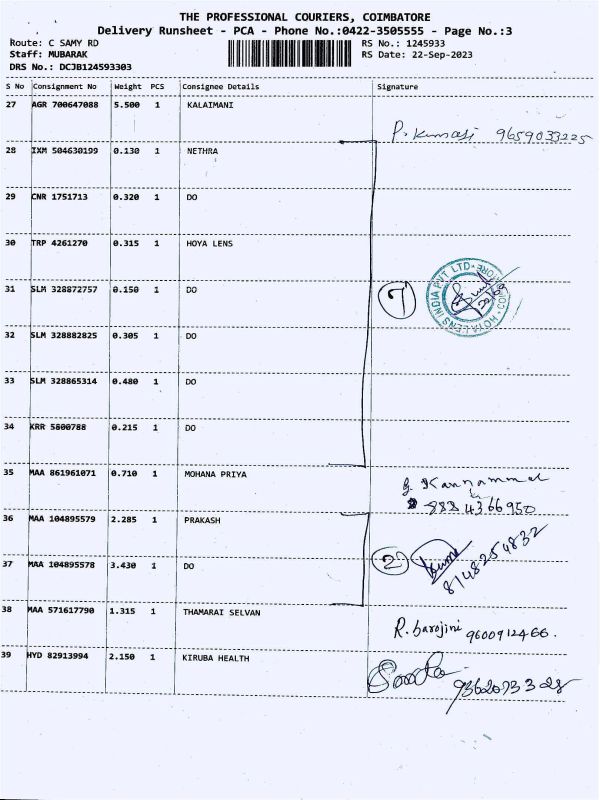 THE PROFESSIONAL COURIERS, COIMBATORE
Delivery Runsheet - PCA - Phone No.:0422-3505555 - Page No.:3
Route: C SAMY RD RS No.: 1245933
Staff: MUBARAK RS Date: 22-Sep-2023
DRS No.: DCJB124593303
S No Consignment No Weight PCS Consignee Details Signature
27 AGR 700647088 5.500 1 KALAIMANI
P. Kumari 9659033225
28 IXM 504630199 0.130 1 NETHRA
29 CNR 1751713 0.320 1 DO
30 TRP 4261270 0.315 1 HOYA LENS
31 SLM 328872757 0.150 1 DO
7 HOYA LENS INDIA PVT LTD
32 SLM 328882825 0.305 1 DO
33 SLM 328865314 0.480 1 DO
34 KRR 5800788 0.215 1 DO
35 MAA 861961071 0.710 1 MOHANA PRIYA
G. Kannammal
8834366950
36 MAA 104895579 2.285 1 PRAKASH
37 MAA 104895578 3.430 1 DO
2 8148254832
38 MAA 571617790 1.315 1 THAMARAI SELVAN
R. Sarojini 9600912466.
39 HYD 82913994 2.150 1 KIRUBA HEALTH